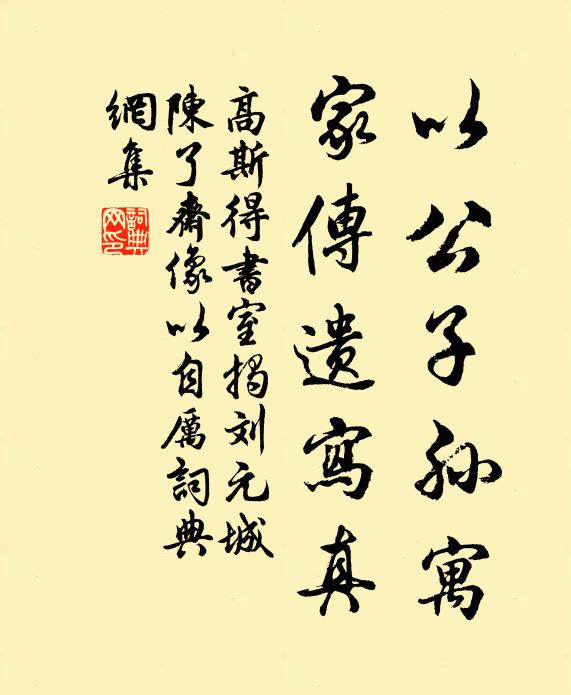 以公子孙寓
家傳遺寫真
高斯得書室揭刘元城
陳了齋像以自厲詞典
網集
詞典网印